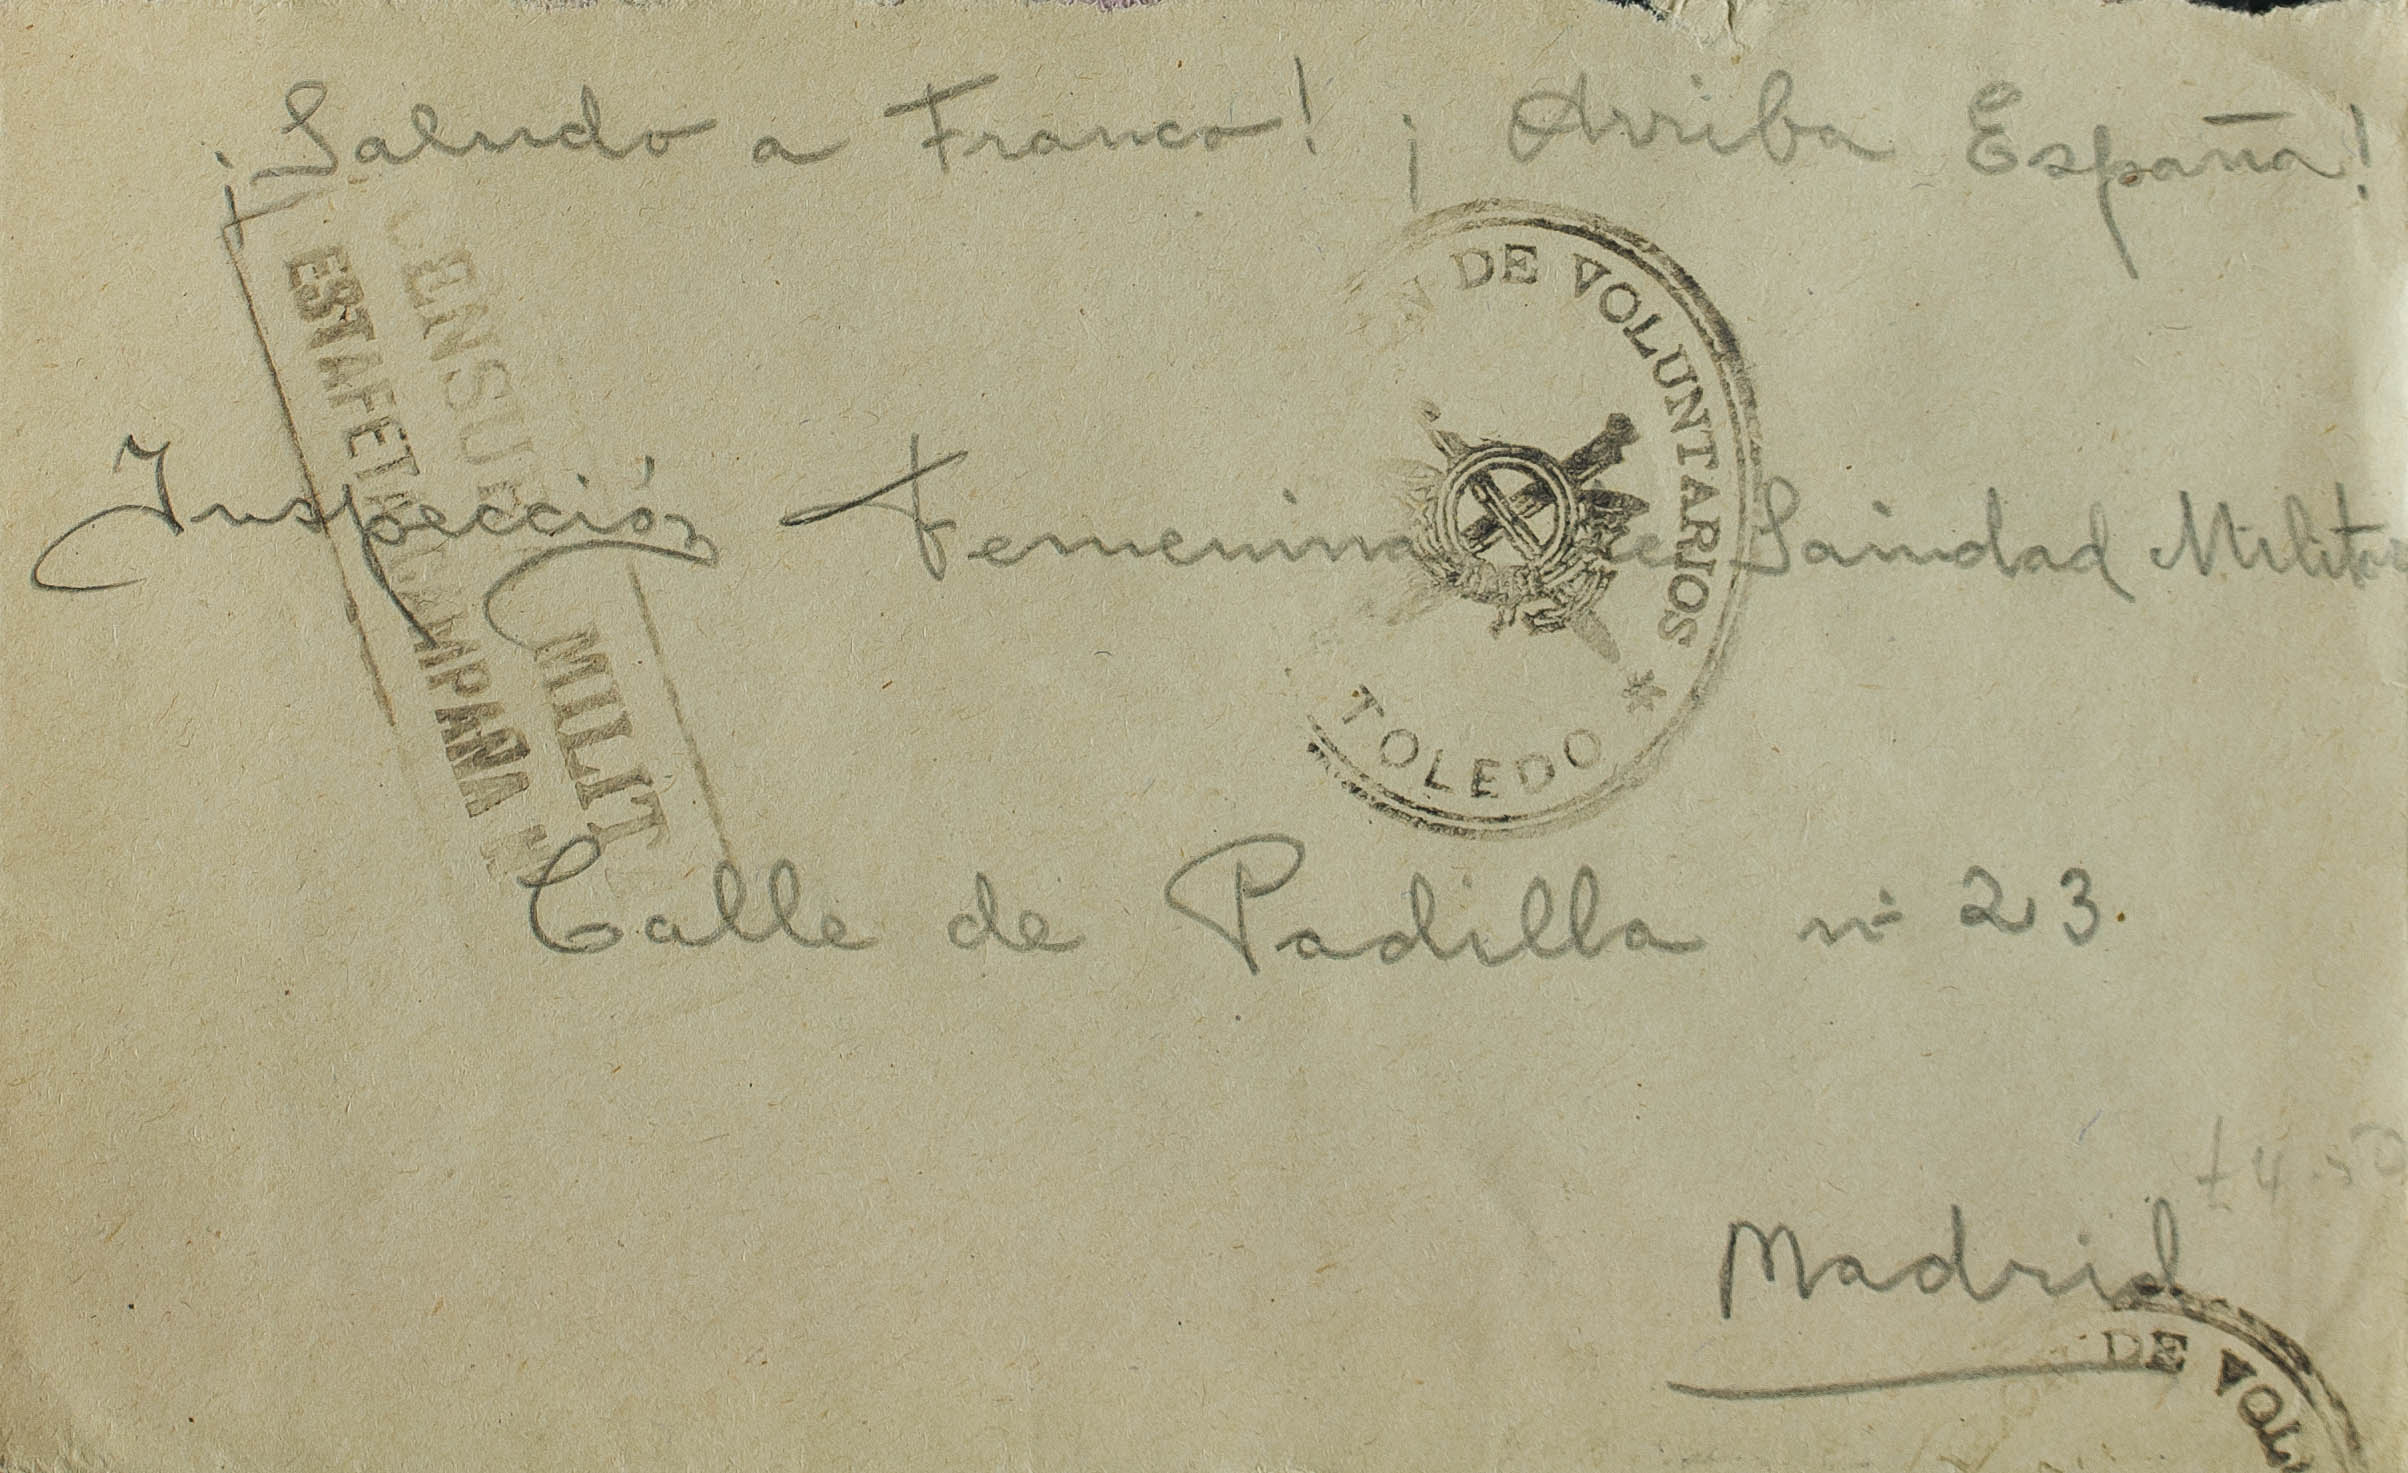 ¡Saludo a Franco! ¡Arriba España!
CENSURA MILIT
ESTAFETA CAMPAÑA
DE VOLUNTARIOS
TOLEDO *
Inspección Femenina de Sanidad Militar
Calle de Padilla nº 23.
Madrid
DE VOL